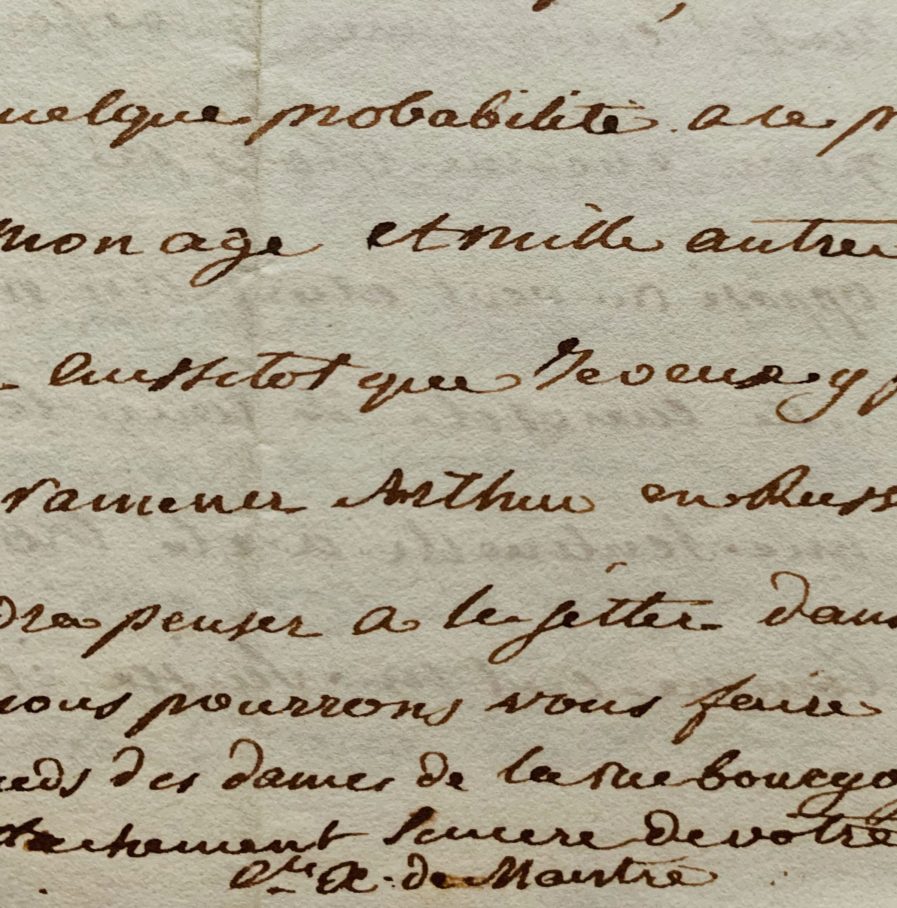 uelque probabilité a ce p
mon age et mille autre
aussitot que Je veux y p
ramener Arthur en Russ
dre penser a le jetter dans
nous pourrons vous faire
ieds des dames de la rue bourgog
tachement sincere de votre
Cte X. de Maistre